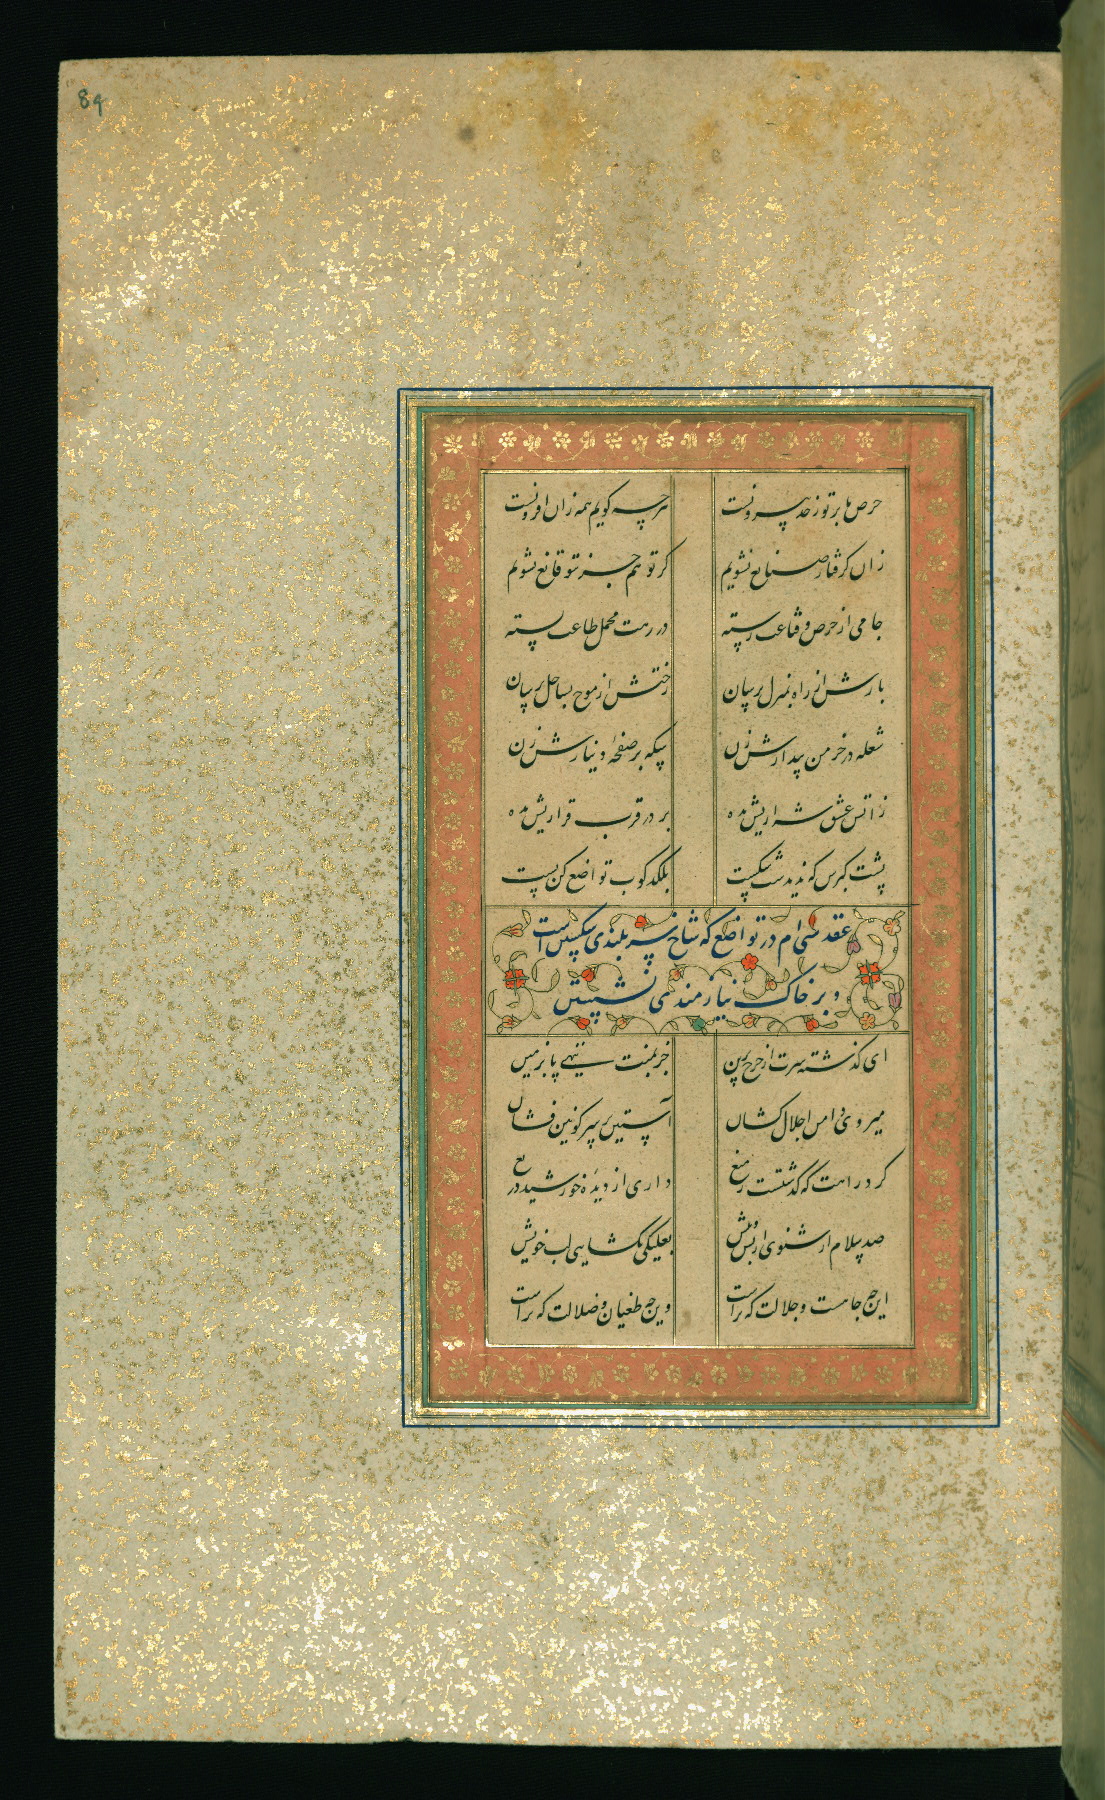 89
حرص ما بر تو ز حد بیرونست
هرچه کویم همه زان افزونست
زان کرفتار صنایع نشویم
کر تو هم جز بتو قانع نشویم
جامی از حرص و قناعت رسته
در رهت محمل طاعت بسته
بارش از راه بمنزل برسان
رختش از موج بساحل برسان
شعله در خرمن پندارش زن
سکه بر صفحهٔ دینارش زن
ز اتش عشق شراریش بده
بر در قرب قراریش بده
پشت کبرش که ندیدست شکست
بلکدکوب تواضع کن پست
عقد سی ام در تواضع که شاخ سربلندی شکستن است
و بر خاک نیازمندی نشستن
ای کذشته سرت از چرخ برین
جز بمنت ننهی پا بزمین
میروی دامن اجلال کشان
آستین بر سر کونین فشان
کرد راهت که کذشتست ز میغ
داری از دیدهٔ خورشید دریغ
صد سلام ار شنوی از پس و پیش
بعلیکی نکشایی لب خویش
این چه جاهست و جلالت که تراست
وین چه طغیان و ضلالت که تراست